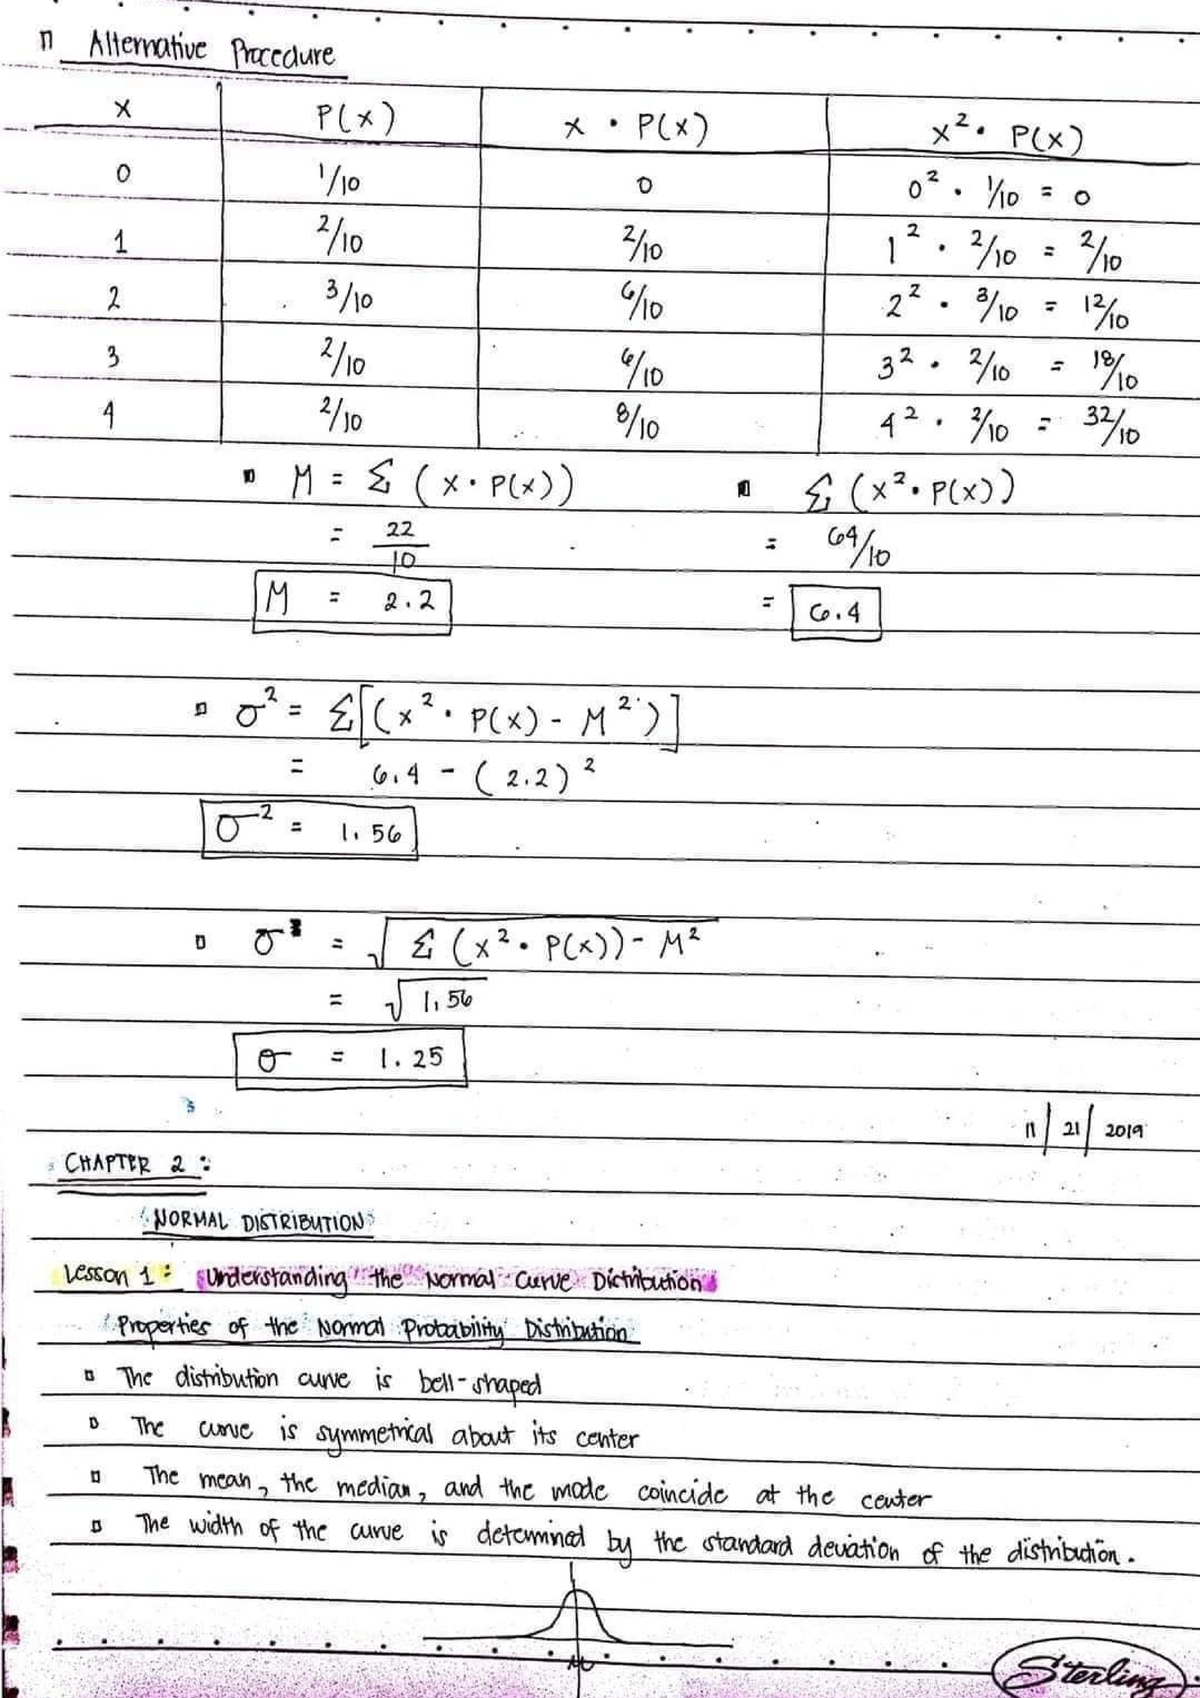 Alternative Procedure
x P(x) x • P(x) x² • P(x)
0 1/10 0 0² • 1/10 = 0
1 2/10 2/10 1² • 2/10 = 2/10
2 3/10 6/10 2² • 3/10 = 12/10
3 2/10 6/10 3² • 2/10 = 18/10
4 2/10 8/10 4² • 2/10 = 32/10
M = Σ (x • P(x)) Σ (x² • P(x))
= 22/10 = 64/10
M = 2.2 = 6.4
σ² = Σ[(x² • P(x) - M²)]
= 6.4 - (2.2)²
σ² = 1.56
σ = √Σ (x² • P(x)) - M²
= √1.56
σ = 1.25
11/21/2019
CHAPTER 2 :
NORMAL DISTRIBUTION
Lesson 1 : Understanding the Normal Curve Distribution
Properties of the Normal Probability Distribution
The distribution curve is bell-shaped
The curve is symmetrical about its center
The mean, the median, and the mode coincide at the center
The width of the curve is determined by the standard deviation of the distribution.
M
Sterling